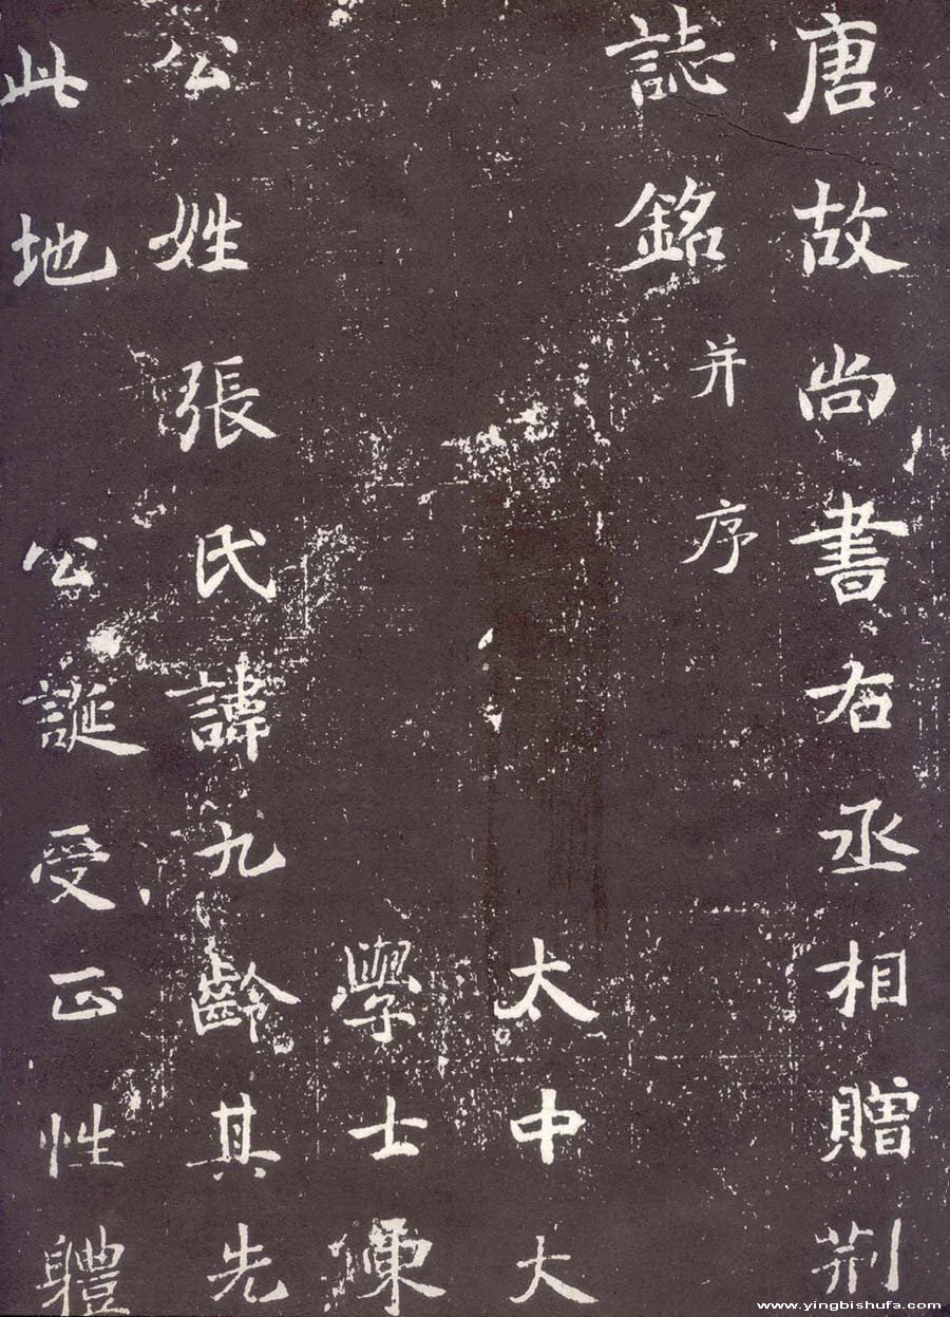 唐故尚書右丞相贈荆
誌銘并序
太中大
學士陳
公姓張氏諱九齡其先
此地公誕受正性體
www.yingbishufa.com